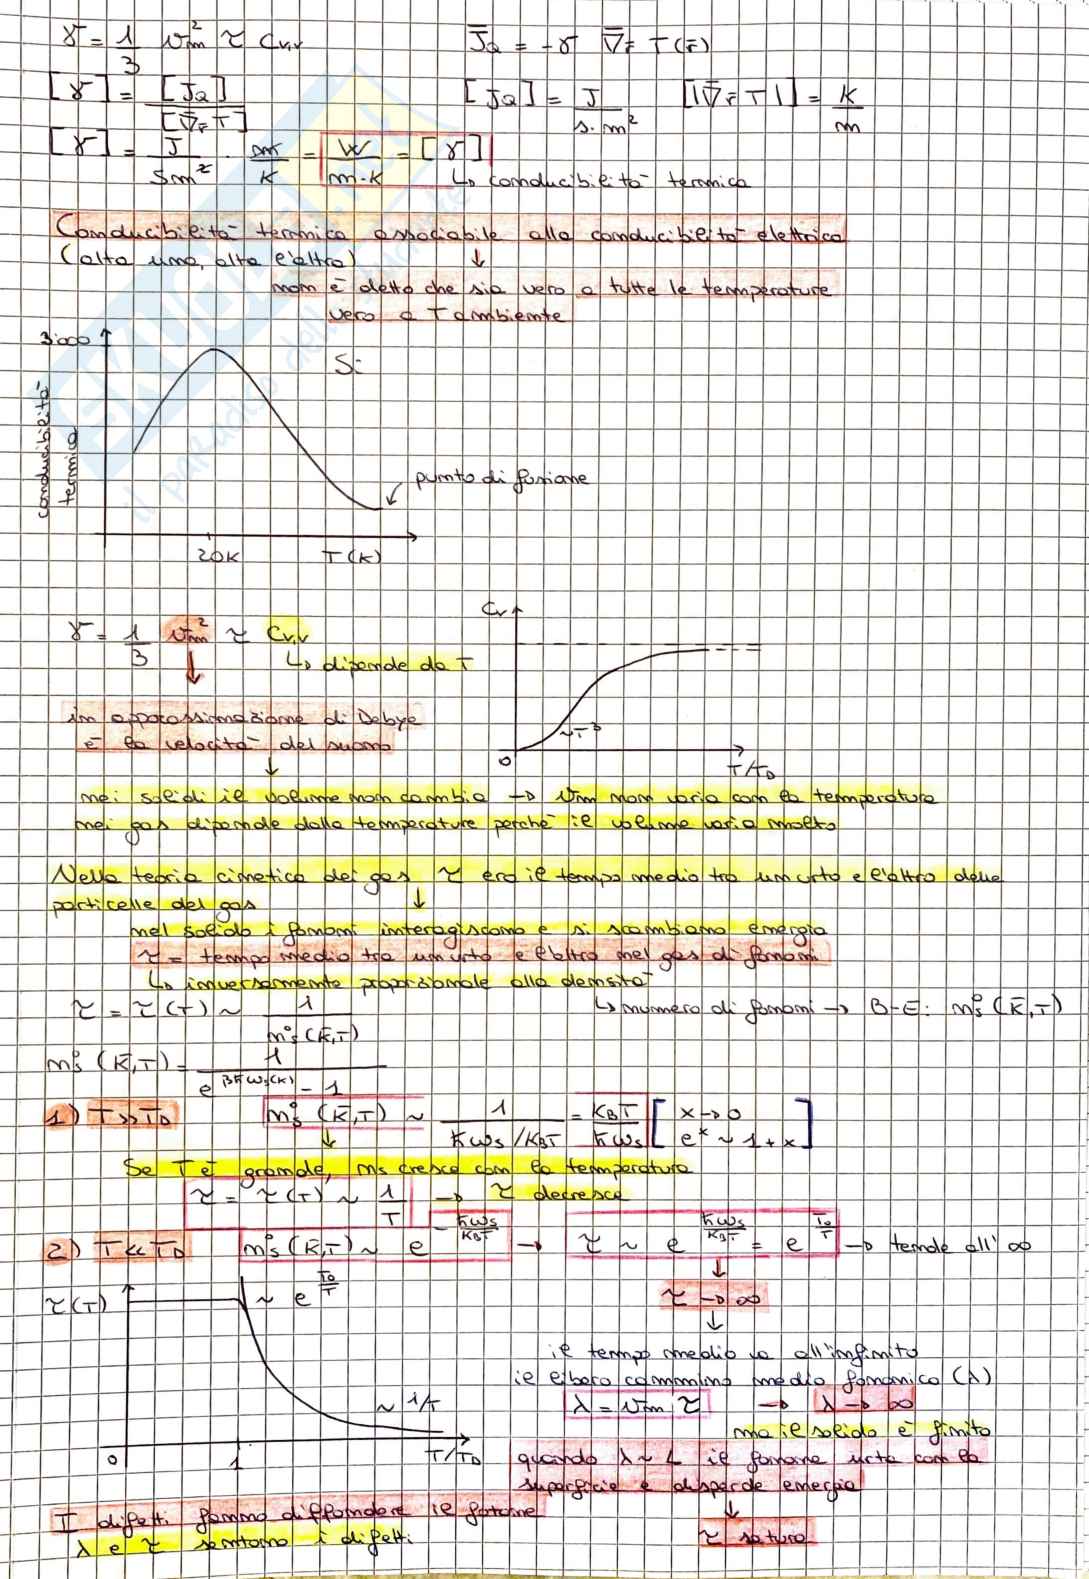 γ = 1/3 vm² τ Cv,v    J̅Q = -γ ∇̅r̅ T(r̅)
[γ] = [JQ] / [∇̅r̅ T]    [JQ] = J / s·m²    [|∇̅r̅ T|] = K / m
[γ] = J / Sm² · m / K = W / m·K = [γ]
↳ conducibilità termica
Conducibilità termica associabile alla conducibilità elettrica
(alta una, alta l'altra) ↓
non è detto che sia vero a tutte le temperature
vero a T ambiente
3000
Si
conducibilità
termica
punto di fusione
20K    T(K)
Cv
γ = 1/3 vm² τ Cv,v
↳ dipende da T
in approssimazione di Debye
è la velocità del suono
~T³
0    T/TD
nei solidi il volume non cambia → vm non varia con la temperatura
nei gas dipende dalla temperature perché il volume varia molto
Nella teoria cinetica dei gas, τ era il tempo medio tra un urto e l'altro delle
particelle del gas ↓
nel solido i fononi interagiscono e si scambiano energia
τ = tempo medio tra un urto e l'altro nel gas di fononi
↳ inversamente proporzionale alla densità
τ = τ(T) ~ 1 / ns°(K̅,T)    ↳ numero di fononi → B-E: ns°(K̅,T)
ns°(K̅,T) = 1 / e^βħωs(K) - 1
1) T≫TD    ns°(K̅,T) ~ 1 / ħωs/KBT = KBT / ħωs [x→0 e^x ~ 1+x]
Se T è grande, ns cresce con la temperatura
τ = τ(T) ~ 1/T → τ decresce
2) T≪TD    ns°(K̅,T) ~ e^-ħωs/KBT → τ ~ e^ħωs/KBT = e^TD/T → tende all'∞
τ(T)    ~ e^TD/T    τ → ∞
il tempo medio va all'infinito
il libero cammino medio fononico (λ)
~ 1/T    λ = vm τ → λ → ∞
ma il solido è finito
0    1    T/TD
quando λ ~ L il fonone urta con la
superficie e disperde energia
I difetti fanno diffondere il fotone
λ e τ sentono i difetti    τ satura
EKUONET
il paradiso dello studente